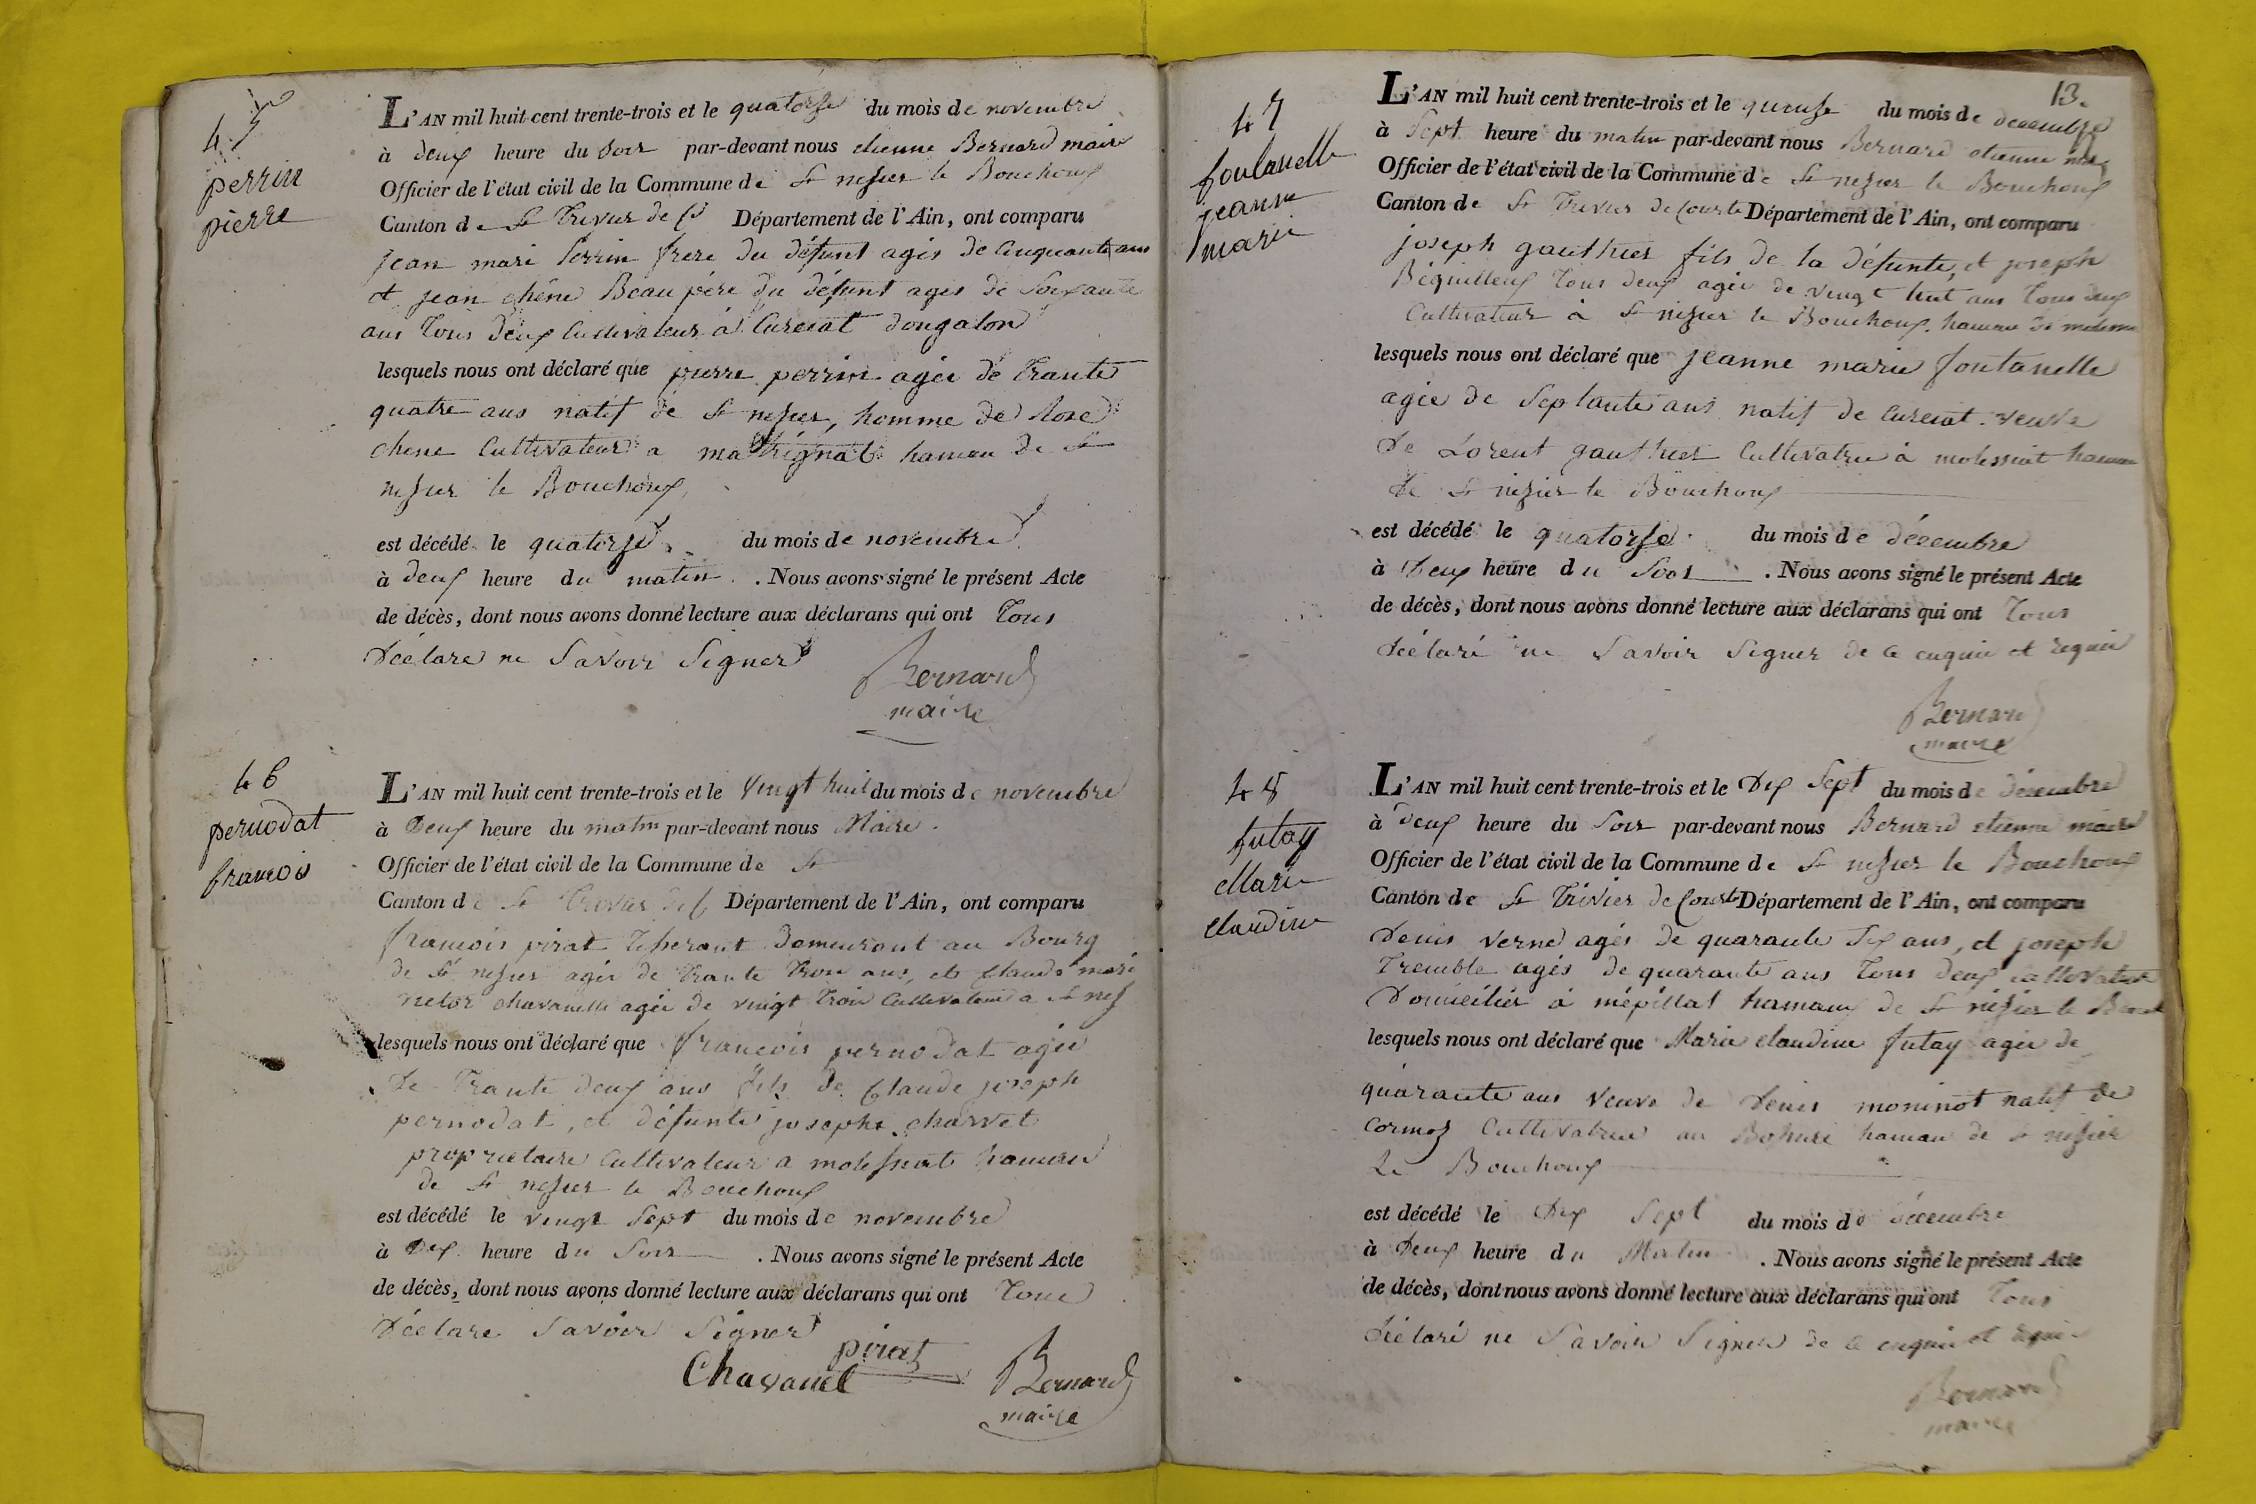 45
perrin
pierre
L'AN mil huit cent trente-trois et le quatorse du mois de novembre
à deux heure du soir par-devant nous etienne Bernard maire
Officier de l'état civil de la Commune de St nesier le Bouchoux
Canton de St Trivier de Cs Département de l'Ain, ont comparu
jean mari Perrin frere du défunt agés de cinquante ans
et jean chêne Beau pére du défunt ages de Soixante
ans Tous deux Cultivateur à Curciat dongalon
lesquels nous ont déclaré que pierre perrin agée de Trante
quatre ans natif de St nesier, homme de Rose
chene Cultivateur a hamau de St
nesier le Bouchoux
est décédé le quatorse du mois de novembre
à deux heure du matin . Nous avons signé le présent Acte
de décès, dont nous avons donné lecture aux déclarans qui ont Tous
Déclare ne Savoir Signer
Bernard
maire
46
pernodat
francois
L'AN mil huit cent trente-trois et le vingt huit du mois de novembre
à Deux heure du matin par-devant nous Maire
Officier de l'état civil de la Commune de St
Canton de St Trivier de C Département de l'Ain, ont comparu
francois pirat Tisserant Demeurant au Bourg
de St nesier agée de Trante Trois ans, et Claude mari
chavanelle agée de vingt Trois Cultivateur a St nes
lesquels nous ont déclaré que francois pernodat agée
de Trante deux ans fils de Claude joseph
pernodat, et défunte josephe charvet
proprietaire Cultivateur a molissiat hamau
de St nesier le Bouchoux
est décédé le vingt Sept du mois de novembre
à Dex heure du Soir . Nous avons signé le présent Acte
de décès, dont nous avons donné lecture aux déclarans qui ont Tous
Déclare Savoir Signer
pirat
Chavanel
Bernard
maire
13.
47
foulanelle
jeanne
marie
L'AN mil huit cent trente-trois et le quense du mois de decembre
à Sept heure du matin par-devant nous Bernard etienne maire
Officier de l'état civil de la Commune de St nesier le Bouchoux
Canton de St Trivier de Courte Département de l'Ain, ont comparu
joseph gauthier fils de la défunte, et joseph
Béquilleux Tous deux agée de vingt huit ans Tous deux
Cultivateur à St nisier le Bouchoux hamau de
lesquels nous ont déclaré que jeanne marie foutanelle
agée de Septante ans natif de Curciat veuve
de Lorent gauthier Cultivatrice à molissiat hamau
de St nisier le Bouchoux
est décédé le quatorse du mois de décembre
à Deux heure du Soir . Nous avons signé le présent Acte
de décès, dont nous avons donné lecture aux déclarans qui ont Tous
Déclaré ne Savoir Signer de ce enquie et requie
Bernard
maire
48
futay
Marie
claudine
L'AN mil huit cent trente-trois et le Dix Sept du mois de décembre
à deux heure du Soir par-devant nous Bernard etienne maire
Officier de l'état civil de la Commune de St nesier le Bouchoux
Canton de St Trivier de Courte Département de l'Ain, ont comparu
Denis verne agés de quarante Six ans, et joseph
Tremble agés de quarante ans Tous deux cultivateur
Domiciliés à mépillat hamaux de St nisier le
lesquels nous ont déclaré que Marie claudine futay agée de
quarante ans veuve de Denis moninot natif de
Cormoz Cultivatrice au hamau de St nisier
Le Bouchoux
est décédé le Dix Sept du mois de décembre
à Deux heure du Matin . Nous avons signé le présent Acte
de décès, dont nous avons donné lecture aux déclarans qui ont Tous
Déclaré ne Savoir Signer de ce enquie et requie
Bernard
maire